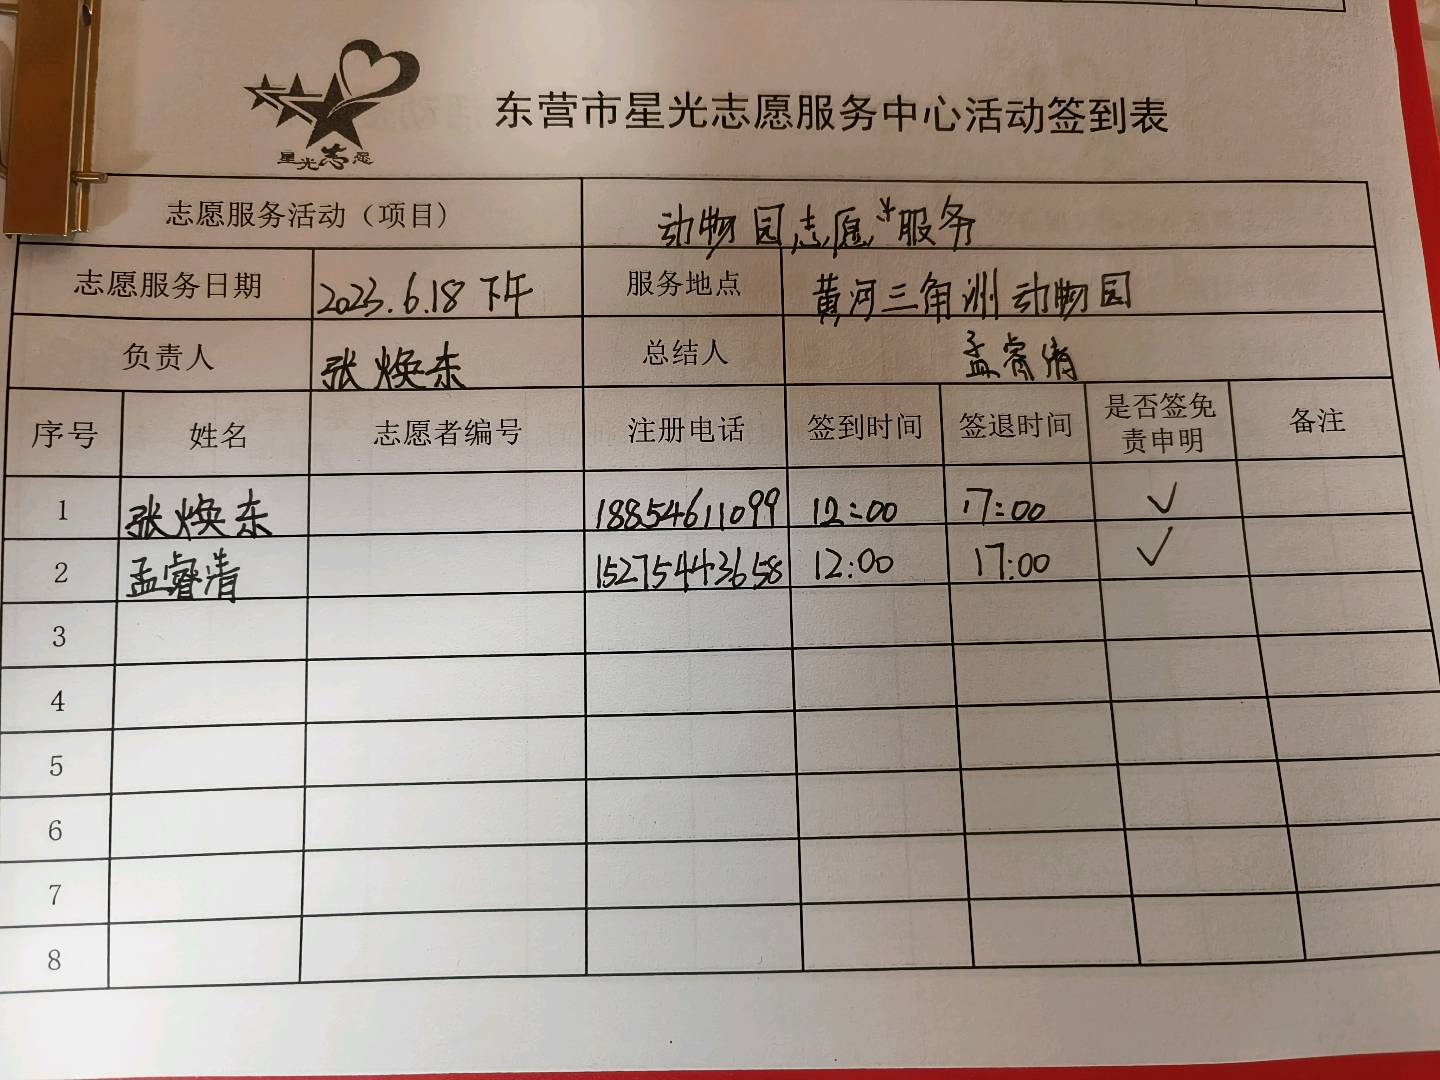 星光志愿
东营市星光志愿服务中心活动签到表
志愿服务活动（项目） 动物园志愿服务
志愿服务日期 2023.6.18 下午 服务地点 黄河三角洲动物园
负责人 张焕东 总结人 孟睿清
序号 姓名 志愿者编号 注册电话 签到时间 签退时间 是否签免责申明 备注
1 张焕东 18854611099 12:00 17:00 ✓
2 孟睿清 15275443658 12:00 17:00 ✓
3
4
5
6
7
8